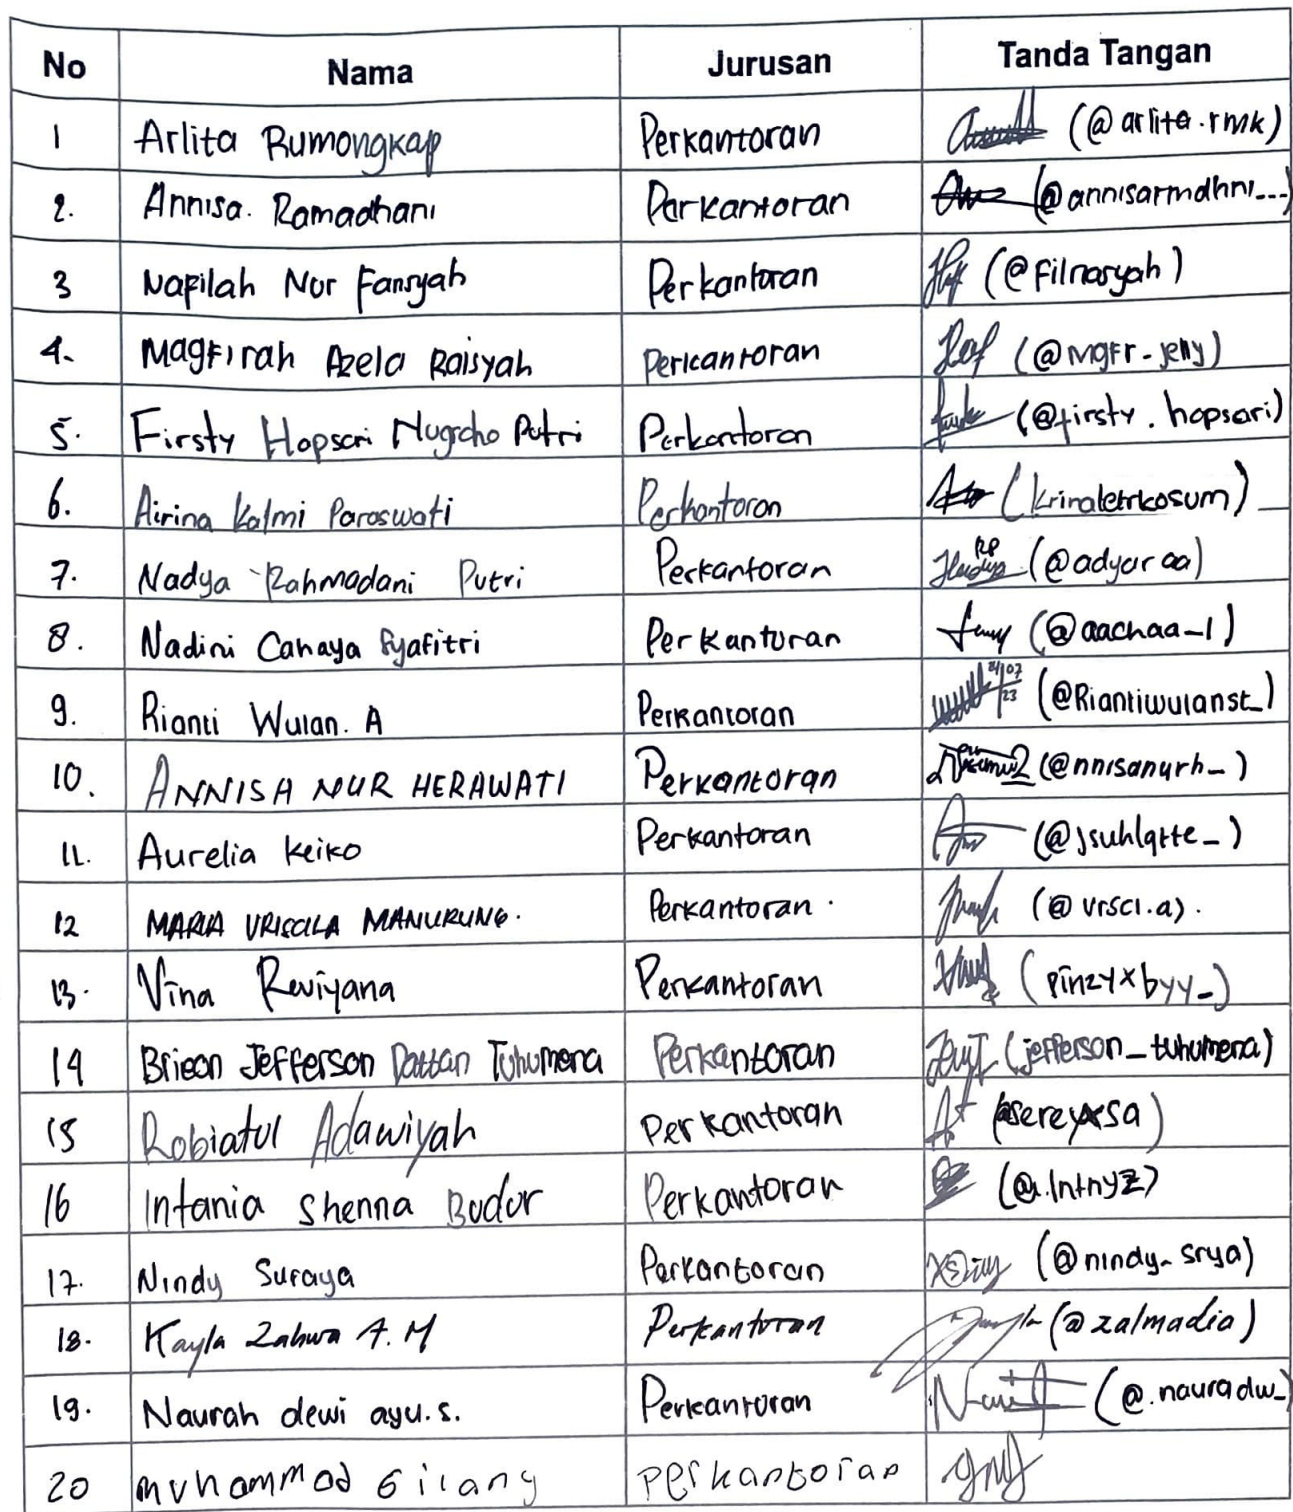 No Nama Jurusan Tanda Tangan
1 Arlita Rumongkap Perkantoran (@arlita.rmk)
2. Annisa. Ramadhani Perkantoran (@annisarmdhni___)
3 Nafilah Nur Fansyah Perkantoran (@filnasyah)
4. Magfirah Azela Raisyah Perkantoran (@mgfr_jelly)
5. Firsty Hapsari Nugroho Putri Perkantoran (@firsty.hapsari)
6. Airina Kalmi Paroswati Perkantoran
7. Nadya Rahmadani Putri Perkantoran (@adyaraa)
8. Nadini Cahaya Syafitri Perkanturan (@aachaa_1)
9. Rianti Wulan. A Perkantoran 24/07/23 (@Riantiwulanst_)
10. ANNISA NUR HERAWATI Perkantoran (@nnisanurh_)
11. Aurelia Keiko Perkantoran (@jsuhlqtte_)
12 MARIA VRISCILA MANURUNG. Perkantoran. (@vrsci.a).
13. Vina Reviyana Perkantoran (pinzyxbyy_)
14 Brieon Jefferson Dattan Tuhumena Perkantoran (jefferson_tuhumena)
15 Robiatul Adawiyah Perkantoran
16 Intania Shenna Budur Perkantoran
17. Nindy Suraya Perkantoran (@nindy_srya)
18. Kayla Zahwa A.M Perkantoran (@zalmadia)
19. Naurah dewi ayu.s. Perkantoran (@.nauradw_)
20 muhammad Gilang perkantoran